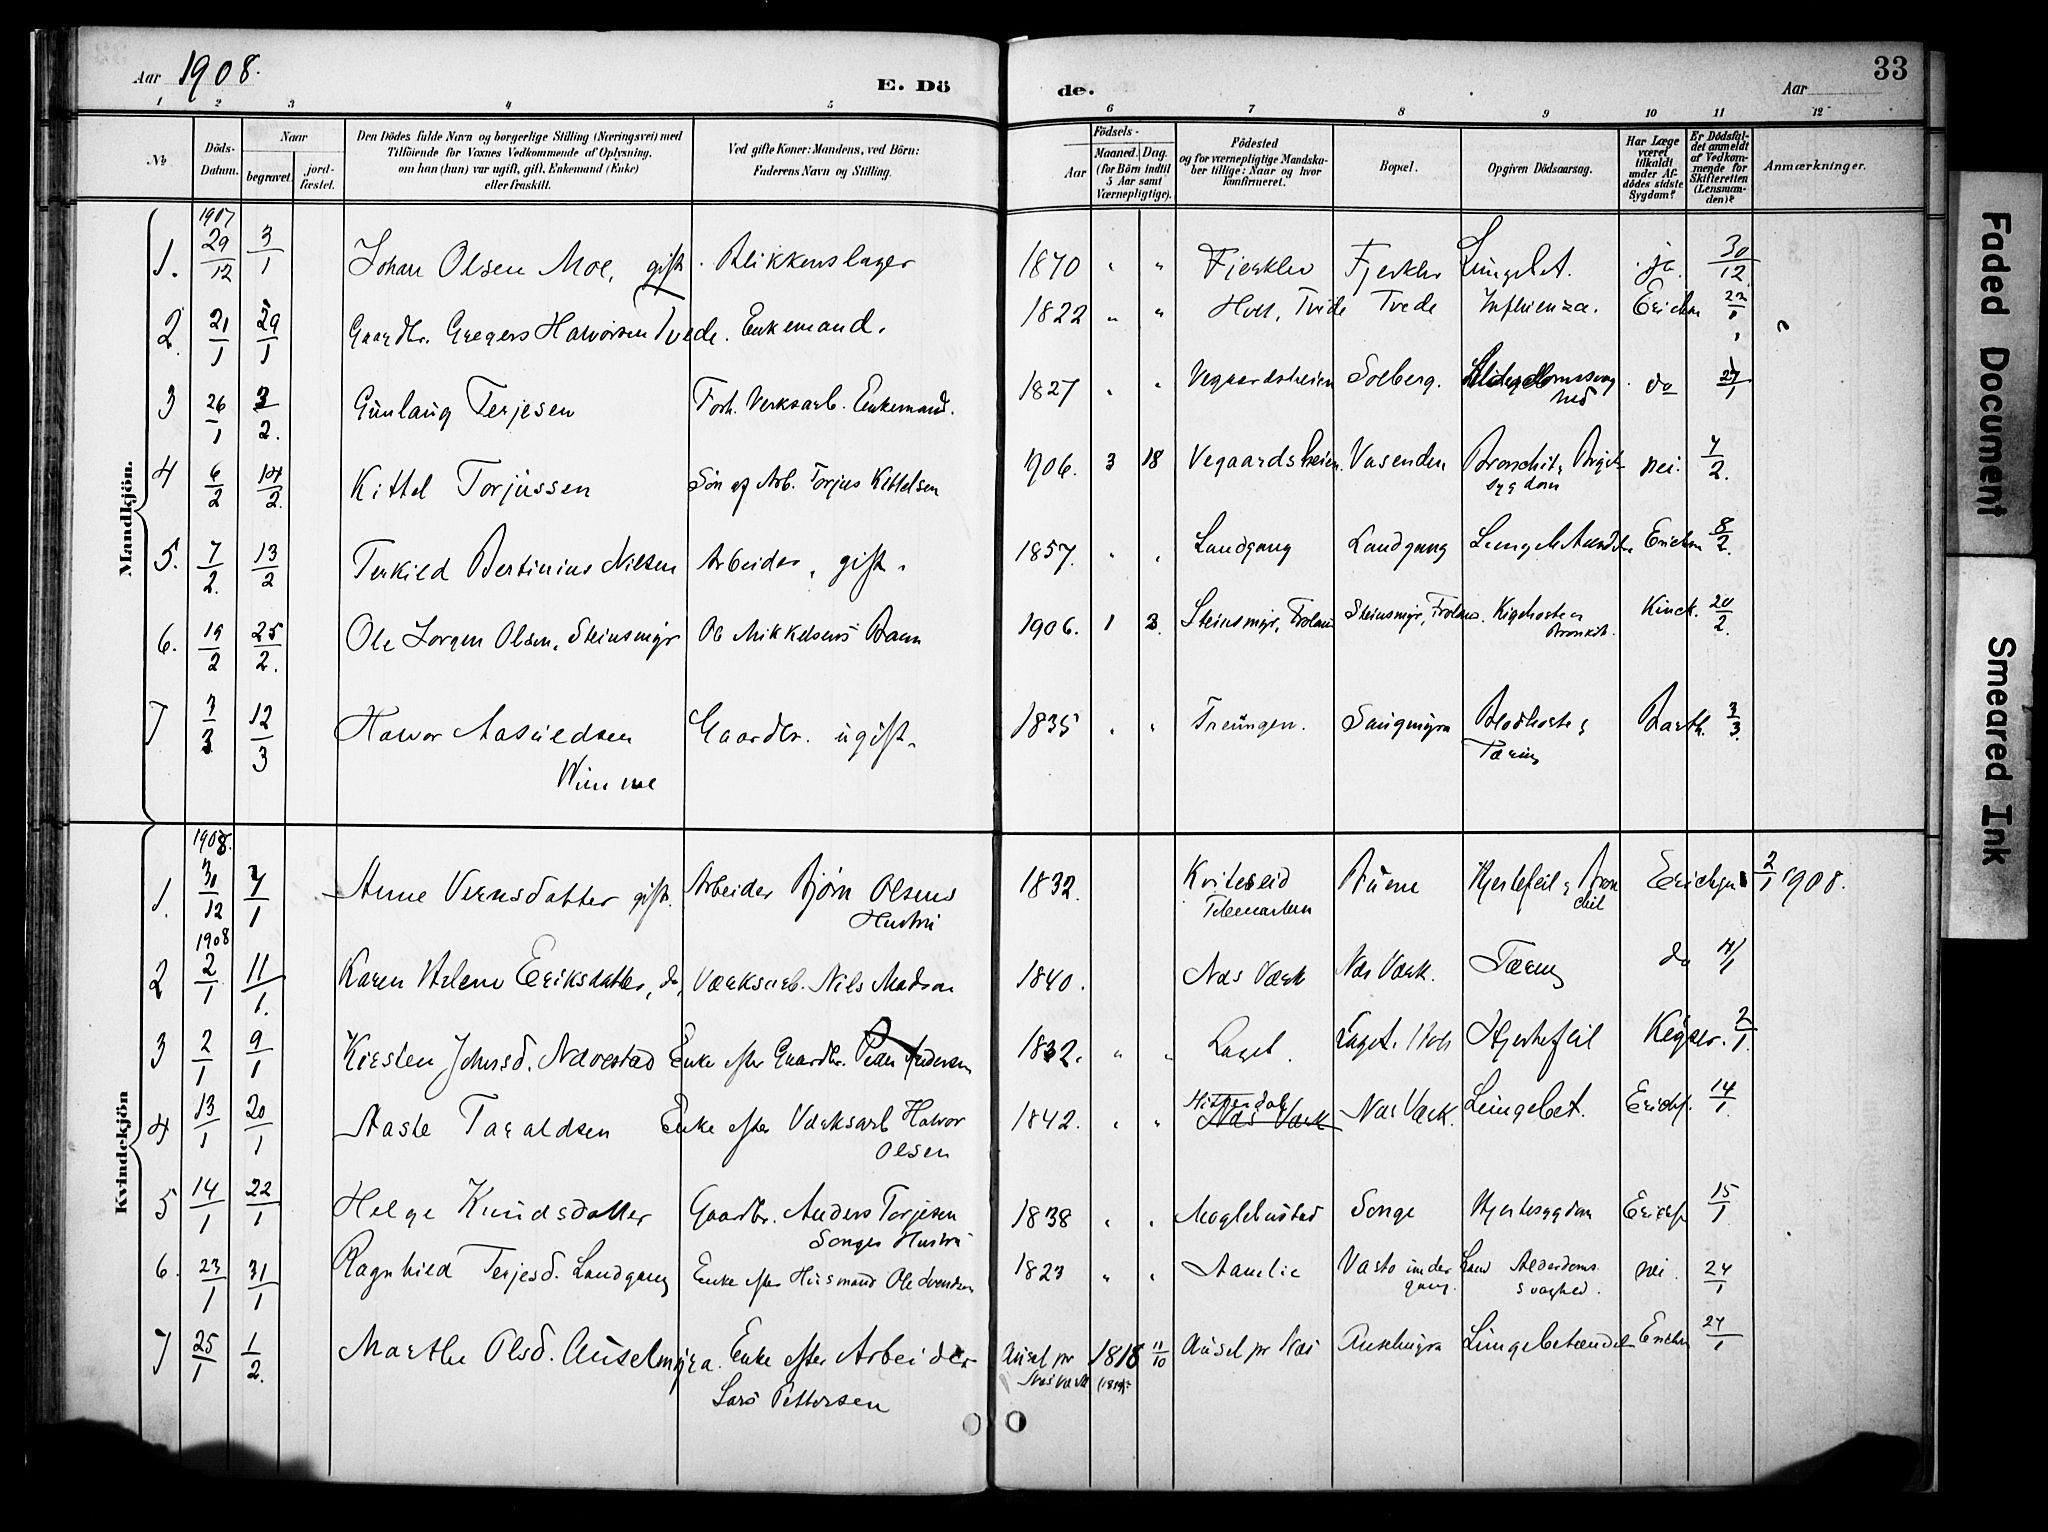 Aar 1908.
E. Dö
de.
Aar
33
1 2 3 4 5
6 7 8 9 10 11 12
No
Döds-
Datum.
Naar
begravet.
jord-
fæstet.
Den Dödes fulde Navn og borgerlige Stilling (Næringsvei) med
Tilföiende for Voxnes Vedkommende af Oplysning,
om han (hun) var ugift, gift, Enkemand (Enke)
eller fraskilt.
Ved gifte Koner: Mandens, ved Börn:
Faderens Navn og Stilling.
Födsels-
Aar
Maaned.
Dag.
(for Börn indtil
5 Aar samt
Værnepligtige).
Födested
og for værnepligtige Mandska-
ber tillige: Naar og hvor
konfirmeret.
Bopæl.
Opgiven Dödsaarsag.
Har Læge
været
tilkaldt
under Af-
dödes sidste
Sygdom?
Er Dödsfal-
det anmeldt
af Vedkom-
mende for
Skifteretten
(Lensman-
den)?
Anmærkninger.
Mandkjön.
1. 1907 29/12 3/1 Johan Olsen Moe, gift. Blikkenslager 1870 " " Lungebet. ja. 30/12
2. 21/1 29/1 Gaardbr. Gregers Halvorsen Tvede. Enkemand. 1822 " " Holt, Tvede Tvede Influenza. 22/1
3 26/1 3/2. Gunlaug Terjesen Forh. Verksarb. Enkemand. 1827 " " Vegaardsheien Solberg. do 27/1
4 6/2 14/2. Kittel Torjussen Søn af Arb. Torjus Kittelsen 1906. 3 18 Vegaardsheien. Vasenden nei. 7/2.
sygdom
5. 7/2. 13/2 Terkild Bertinius Nilsen Arbeider, gift. 1857. " " Landgang Landgang 8/2.
6. 19/2 25/2. Ole Jørgen Olsen, Steinsmyr Ol. Mikkelsens Barn 1906. 1 3. Steinsmyr, Froland Steinsmyr, Froland. Kighoste & Kinck. 20/2.
Bronkit.
7 3/3 12/3 Halvor Aasuldsen Gaardbr. ugift. 1835 " " Treungen. Saugmyra Blodhoste & Barth. 3/3.
Tæring
Kvindekjön
1. 1908. 30/12 7/1 Anne gift. Arbeider Bjørn Olsens 1832. Kviteseid Hjertefeil & Bron 2/1 1908.
Hustru Telemarken chit
2 1908 2/1 11/1. Karen Helene Eriksdatter, do, Værksarb. Nils Madsen 1840. Næs Værk Næs Værk. Tæring do 4/1
3 2/1 9/1 Kirsten Johnsd. Navestad Enke efter Gaardbr. Peder Andersen 1832. " " Laget. Laget. Holt Hjertefeil Keyser. 2/1.
4 13/1 20/1 Aaste Taraldsen Enke efter Værksarb Halvor 1842. " " Hitterdal Næs Værk Næs Værk. Lungebet. Erichs. 14/1.
Olsen
5 14/1 22/1 Helge Knudsdatter Gaardbr. Anders Terjesen 1838 " " Songe Hjertesygdom Erichs 15/1
Songes Hustru
6. 23/1 31/1 Ragnhild Terjesd. Landgang Enke efter Husmand Ole Svendsen 1823 " " Aamlie Vasto under Land Alderdoms. nei. 24/1
gang. svaghed.
7 25/1 1/2. Marthe Olsd. Auselmyra. Enke efter Arbeider Ausel pr 1818 11/10 Ausel pr Næs Auselmyra Lungebetændelse 27/1
Lars Pettersen Næs Værk
Faded Document
Smeared Ink